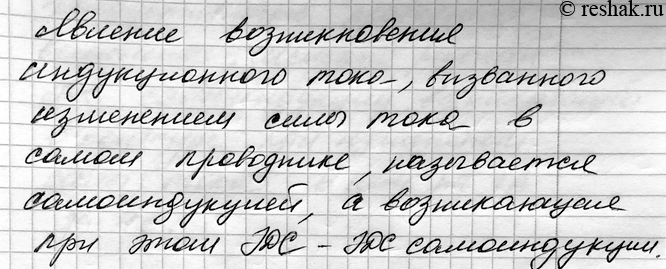 © reshak.ru
Явление возникновения
индукционного тока, визванного
изменением силы тока в
самом проводнике, называется
самоиндукцией, а возникающая
при этом ЭДС - ЭДС самоиндукции.